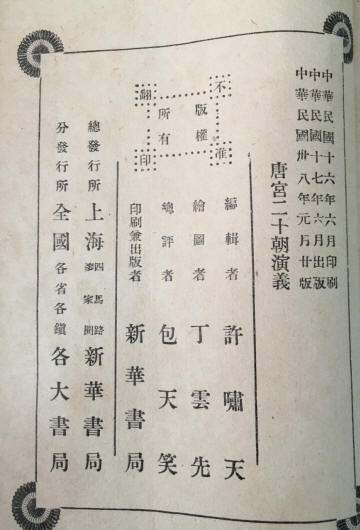 中華民國十六年六月印刷
中華民國十七年六月出版
中華民國卅八年元月廿版
唐宮二十朝演義
不准翻印
版權所有
編輯者 許嘯天
繪圖者 丁雲先
總評者 包天笑
印刷兼出版者 新華書局
總發行所 上海 四馬路 麥家圈 新華書局
分發行所 全國 各省各鎮 各大書局